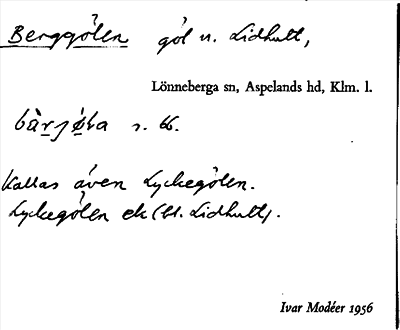 Berggölen göl n. Lidhult,
Lönneberga sn, Aspelands hd, Klm. l.
Kallas även Lyckegölen.
Lyckegölen ek (bl. Lidhult).
Ivar Modéer 1956